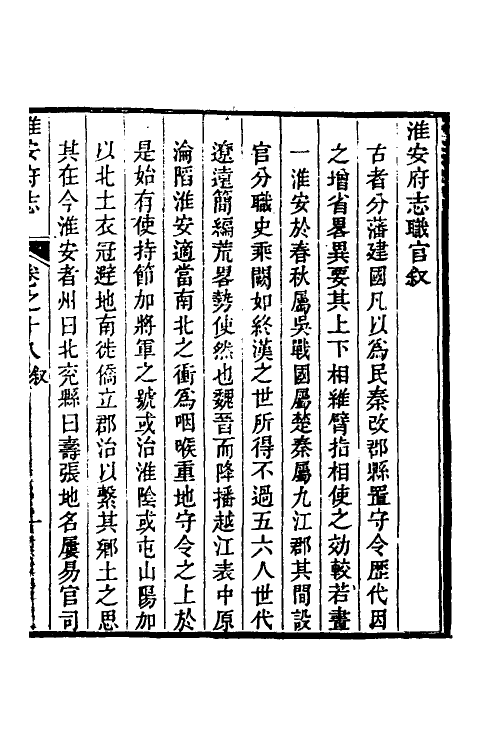 淮安府志職官敘
古者分藩建國凡以為民秦改郡縣置守令歷代因
之增省畧異要其上下相維臂指相使之効較若畫
一淮安於春秋屬吳戰國屬楚秦屬九江郡其間設
官分職史乘闕如終漢之世所得不過五六人世代
遼遠簡編荒畧勢使然也魏晉而降播越江表中原
淪陷淮安適當南北之衝為咽喉重地守令之上於
是始有使持節加將軍之號或治淮陰或屯山陽加
以北土衣冠避地南徙僑立郡治以繫其鄉土之思
其在今淮安者州曰北兗縣曰壽張地名屢易官司
淮安府志 卷之十八敘 一